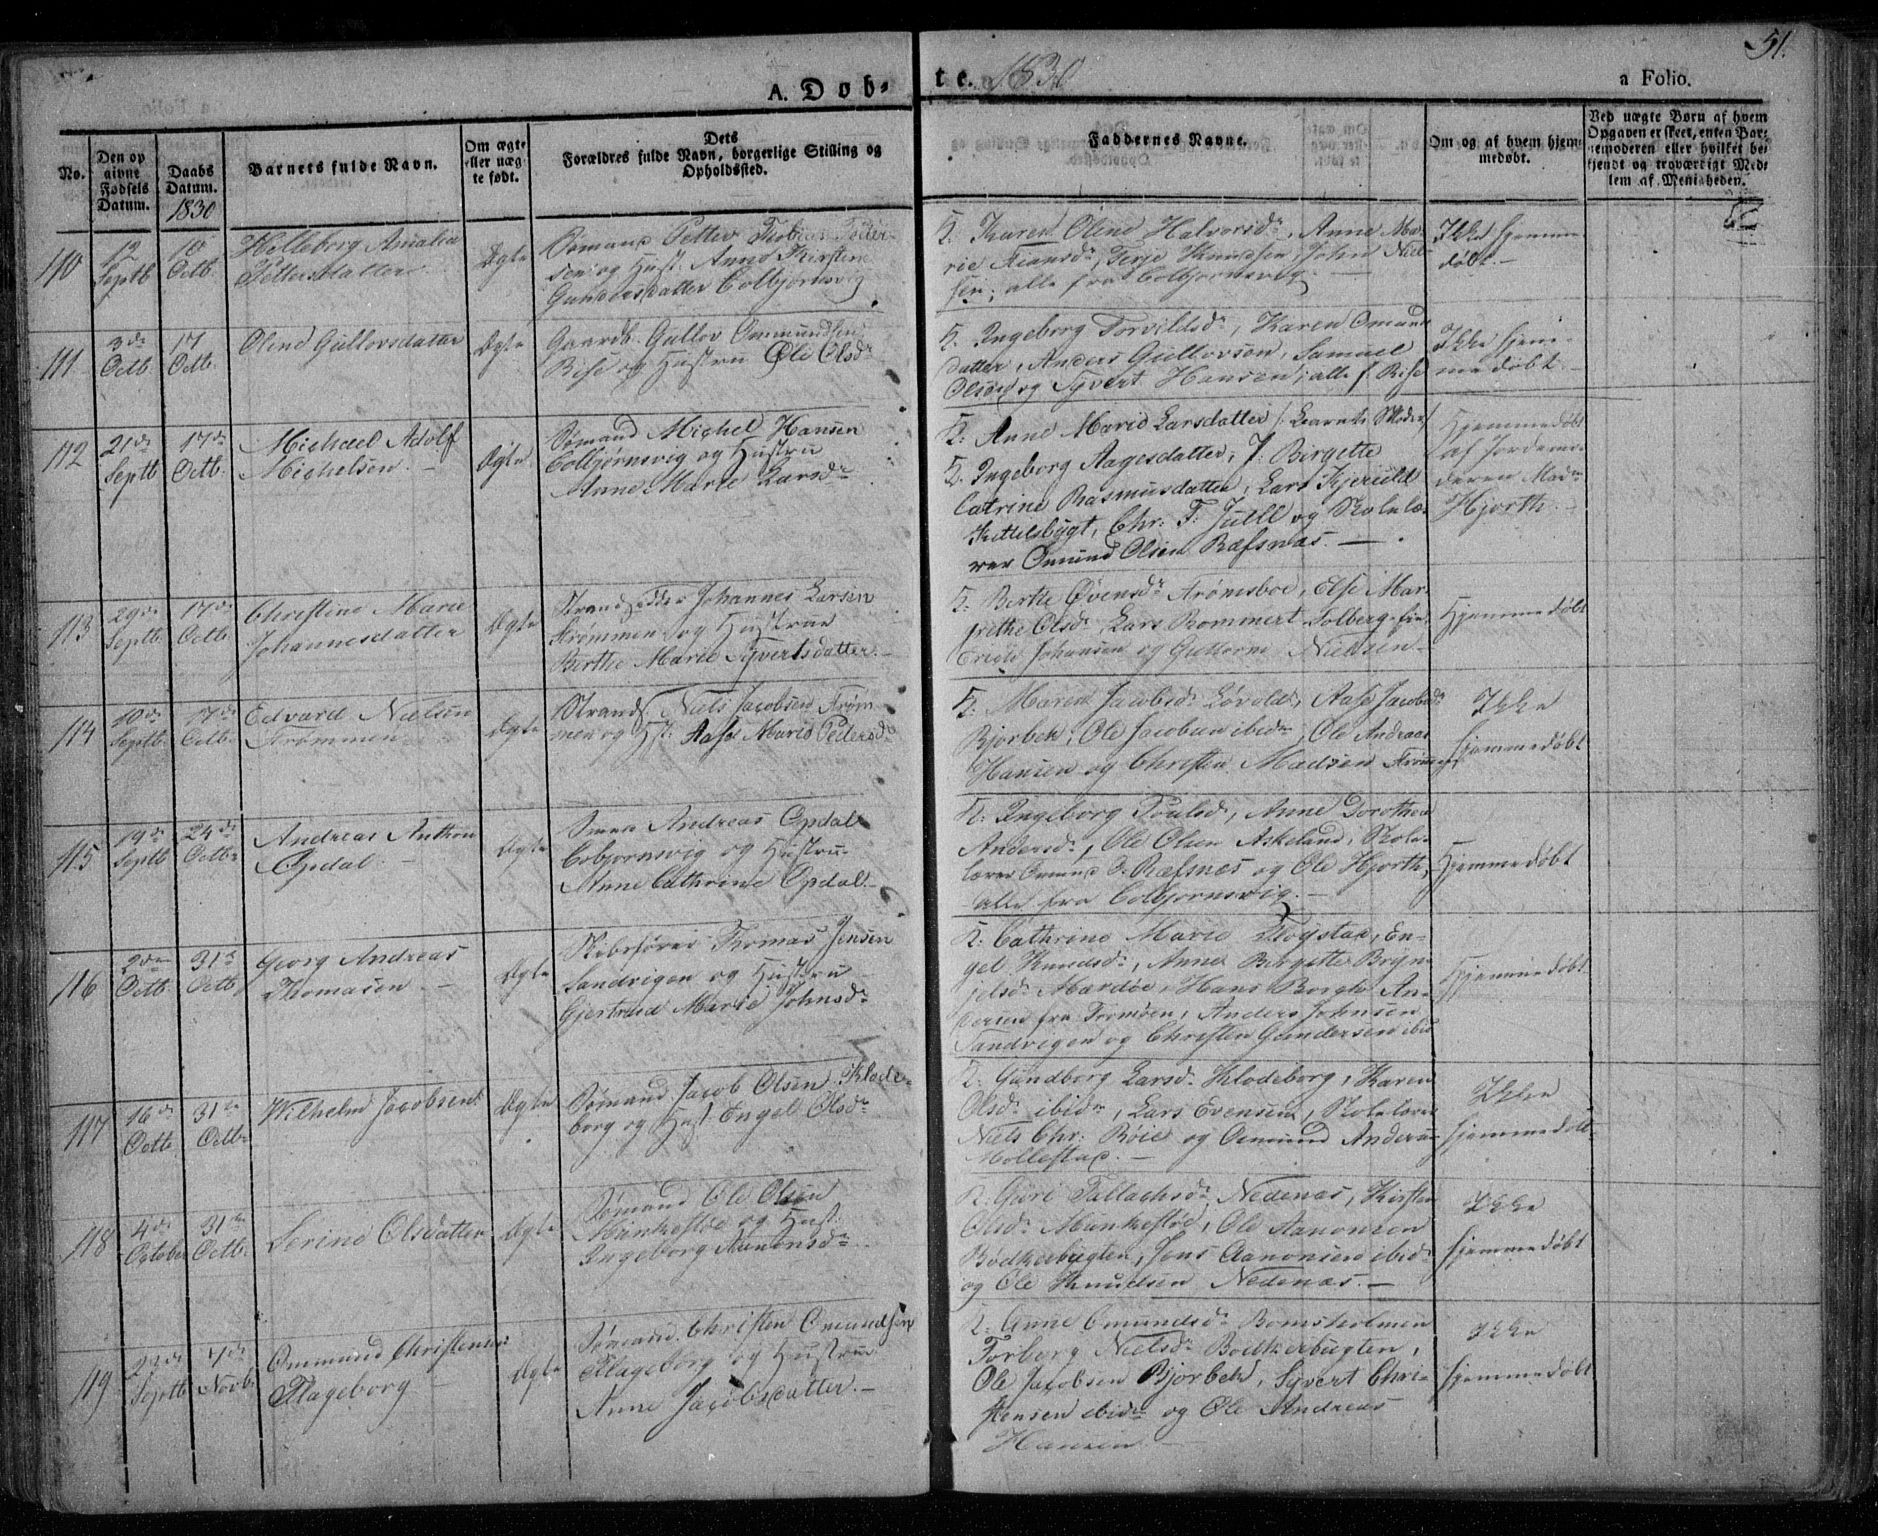 51.
A. Døb-
te. 1830
a Folio.
No.
Den op
givne
Fødsels
Datum.
Daabs
Datum.
1830
Barnets fulde Navn.
Om ægte
eller uæg-
te født.
Dets
Forældres fulde Navn, borgerlige Stilling og
Opholdssted.
Faddernes Navne.
Om og af hvem hjem-
medøbt.
Ved uægte Børn af hvem
Opgaven er skeet, enten Bar-
nemoderen eller hvilket be-
kjendt og troværdigt Med-
lem af Menigheden.
110
12
Septb
10
Octb.
Helleborg Amalia
Pettersdatter
Ægte
Sømand Petter Tobias Peder-
sen og Hust. Anne Kirstine
Gundersdatter Colbjørnsvig
F. Karen Oline Halvorsd., Anne Ma-
rie , Terje Knudsen, John Niel-
sen, alle fra Colbjørnsvig.
Ikke hjemme
døbt.
111
3de
Octb.
17
Octb.
Oline Gullovsdatter
Ægte
Gaardb. Gullov Ommundsen
Bise og Hustru Øli Olsdr
F. Ingeborg Torvildsd., Karen Omund
datter, Anders Gullovsen, Samuel
Olsen og Syvert Hansen, alle f. Bise
Ikke hjem-
medøbt.
112
21de
Septb
17de
Octb.
Michael Adolf
Michelsen
Ægte
Sømand Michel Hansen
Colbjørnsvig og Hustru
Anne Marie Larsdr
F. Anne Marie Larsdatter /: Barnets Moder /
F. Ingeborg Aagesdatter, J. Birgette
Catrine Rasmusdatter, Lars Kjerulf
Kittelsbugt, Chr. F. Juell og Skolelæ-
rer Omund Olsen Ræfsnæs.
Hjemmedøbt
af Jordemo-
deren Mad.
Hjorth.
113
29de
Septb
17de
Octb.
Christine Marie
Johannesdatter
Ægte
Strandsidder Johannes Larsen
Strømmen og Hustrue
Berthe Marie Syvertsdatter.
F. Berthe Øvensdr Strømsboe, Else Mar-
grethe Olsd., Lars Rommert Solberg,
Johansen og Guttorm Nielsen
Hjemmedøbt
114
10de
Septb.
17de
Octb.
Edvard Nielsen
Strømmen
Ægte
Strands. Niels Jacobsen Strøm
men og H. Aase Marie Pedersdr
F. Maren Jacobsd. Løvold, Aase Jacobsdr
Bjorbek, Ole Jacobsen ibidm, Ole Andreas
Hansen og Christen Madsen Strømmen
Ikke
hjemmedøbt
115
19de
Septb
24de
Octbr
Andreas Anthon
Opdal
Ægte
Smen Andreas Opdal
Cobjornsvig og Hustru
Anne Cathrine Opdal.
F. Ingeborg Poulsd., Anne Dorothea
Andersd., Ole Olsen Askeland, Skole-
lærer Omund O. Ræfsnes og Ole Hjorth,
alle fra Colbjornsvig.
Hjemmedøbt
116
2den
Octb
31te
Octb
Georg Andreas
Thomasen
Ægte
Skibsfører Thomas Jensen
Sandvigen og Hustru
Gjertrud Marie Johnsdr
F. Cathrine Marie Fløystad, En-
gel Knudsd., Anne Birgette Bryn-
jelsd. Mærdøe, Hans Bergh An-
dersen fra Tromøen, Anders Johnsen
Sandvigen og Christen Gundersen ibid
Hjemmedøbt
117
16de
Octb
31te
Octbr
Wilhelm Jacobsen
Ægte
Sømand Jacob Olsen Klode-
borg og Hust. Engel Olsdr
F. Gundborg Larsd. Klodeborg, Karen
Olsd. ibidm, Lars Evensen, Skolelærer
Niels Chr. Röie og Omund Andersen
Mollestad.
Ikke
hjemmedøbt
118
4de
October
31te
Octb.
Serine Olsdatter
Ægte
Sømand Ole Olsen
Munkestøe og Hust.
Ingeborg Aanonsdr
F. Guri Tallachsd. Nedenæs, Kirsten
Olsd. Munkestøe, Ole Aanonsen
Bødkerbugten, Jens Aanonsen ibidm
og Ole Knudsen Nedenæs.
Ikke
hjemmedøbt
119
22de
Septb
7de
Novb.
Ommund Christensen
Flageborg
Ægte
Sømand Christen Omundsen
Flageborg og Hustrue
Anne Jacobsdatter.
F. Anne Omundsd. Bomsholmen
Torborg Nielsd. Bødkerbugten,
Ole Jacobsen Bjorbek, Syvert Chri-
stensen ibidm og Ole Andreas
Hansen
Ikke
hjemmedøbt